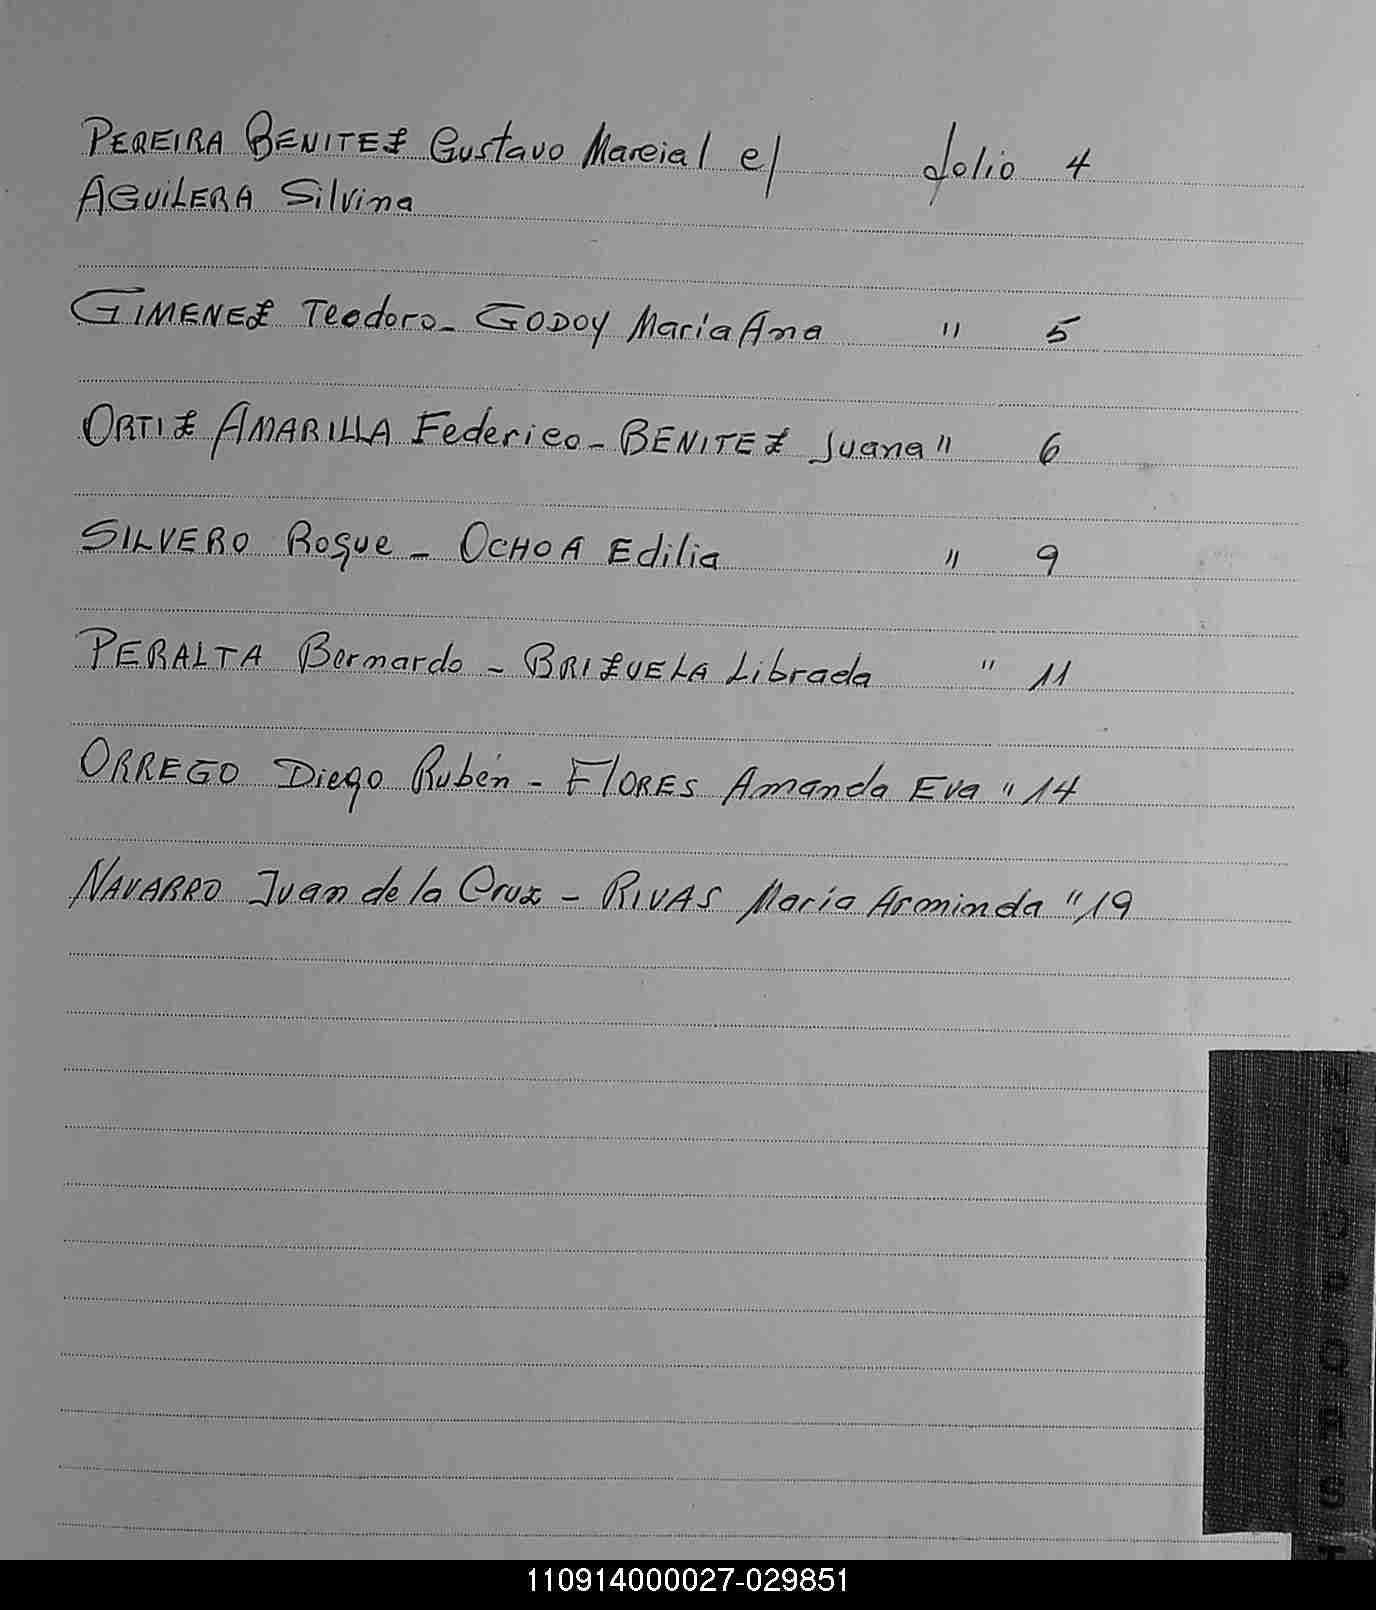 PEREIRA BENITEZ Gustavo Marcial c/ folio 4
AGUILERA Silvina
GIMENEZ Teodoro - GODOY María Ana " 5
ORTIZ AMARILLA Federico - BENITEZ Juana " 6
SILVERO Roque - OCHOA Edilia " 9
PERALTA Bernardo - BRIZUELA Librada " 11
ORREGO Diego Rubén - FLORES Amanda Eva " 14
NAVARRO Juan de la Cruz - RIVAS María Arminda " 19
110914000027-029851